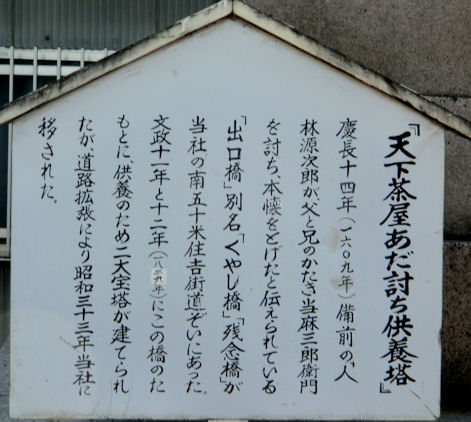 『天下茶屋あだ討ち供養塔』
慶長十四年(一六〇九年)備前の人
林源次郎が父と兄のかたき当麻三郎衛門
を討ち、本懐をとげたと伝えられている
「出口橋」別名「くやし橋」「残念橋」が
当社の南五十米住吉街道ぞいにあった。
文政十一年と十二年(一八二九年)にこの橋のた
もとに、供養のため二大宝塔が建てられ
たが、道路拡張により昭和三十三年当社に
移された。